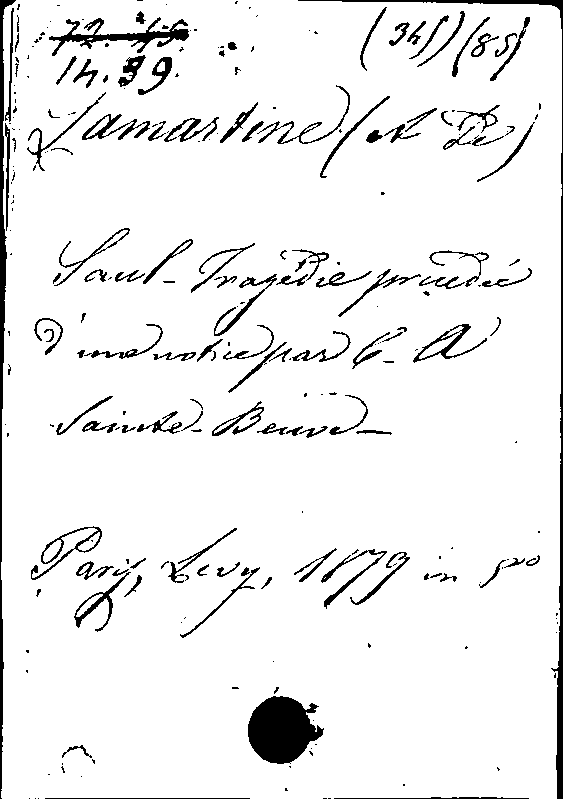 72. 45
14.39
(345) (85)
Lamartine (A De)
Saul - Tragédie précédée
d'une notice par C - A
Sainte-Beuve -
Paris, Levy, 1879 in 8vo